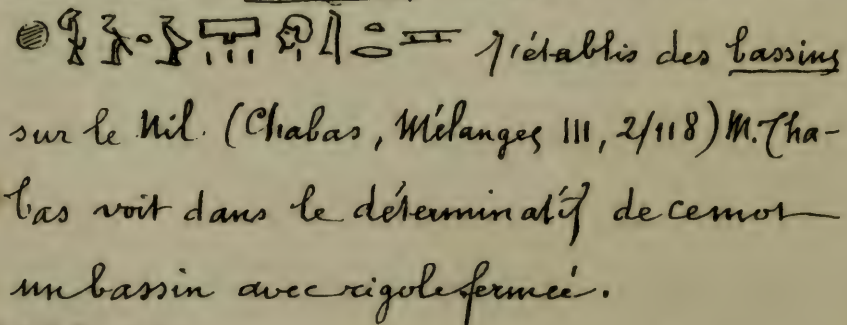 j'établis des bassins
sur le Nil. (Chabas, Mélanges III, 2/118) M. Cha-
bas voit dans le déterminatif de ce mot
un bassin avec rigole fermée.